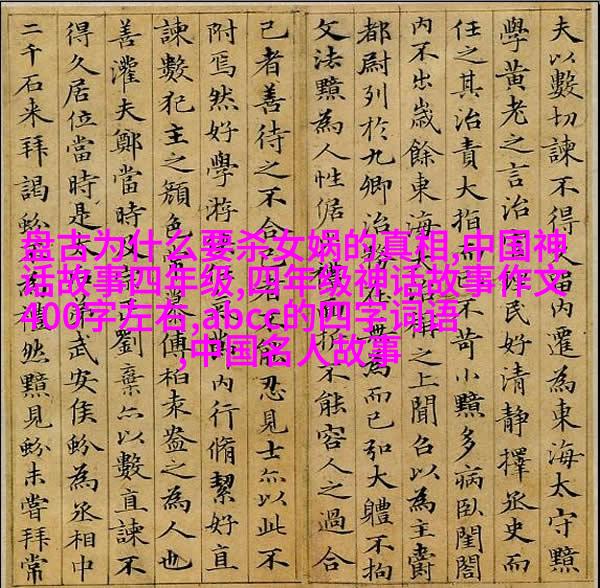 夫以數切諫不得留內遷為東海太守黯
學黃老之言治民好清靜擇丞史而
任之其治責大指不苛小黯多病臥閨閤
內不出歲餘東海大稱之上聞召以為主爵
都尉列於九卿治務在無為而已弘大體不拘
文法黯為人性倨禮折不能容人之過合
己者善待之不合己者不能忍見士亦以此不
附焉然好學游內行脩絜好直
諫數犯主之顏色常慕傅柏袁盎之為人也
善灌夫鄭當時及劉棄亦以數直諫不
得久居位當時是太弟武安侯蚡為丞相中
二千石来拜謁蚡為禮然黯見蚡未嘗拜常
盘古为什么要杀女娲的真相,中国神
话故事四年级,四年级神话故事作文
400字左右,abcc的四字词语
,中国名人故事